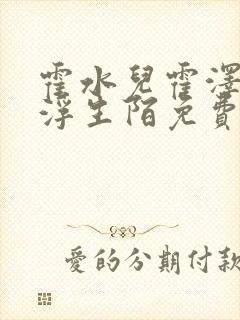 霍水兒霍澤
浮生陌免費
愛的分期付款